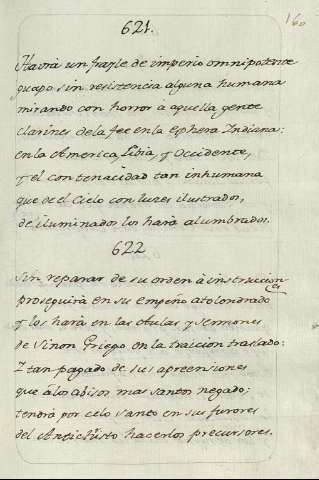 621.
160
Havrà un frayle de imperio omnipotente
guapo sin resistencia alguna humana
mirando con horror à aquella gente
clarines de la fee en la Esphera Indiana:
en la America, Libia, y Occidente,
y el con tenacidad tan inhumana
que de el Cielo con luzes ilustrados,
de iluminados los harà alumbrados.
622
Sin reparar de su orden à instrucciones
proseguirà en su empeño atolondrado
y los harà en las Aulas y sermones
de Sinon Griego en la traicion traslado:
I tan pagado de sus apreensiones
que à los abisos mas santos negado;
tendrà por celo santo en sus furores
del Antichristo hacerlos precursores.